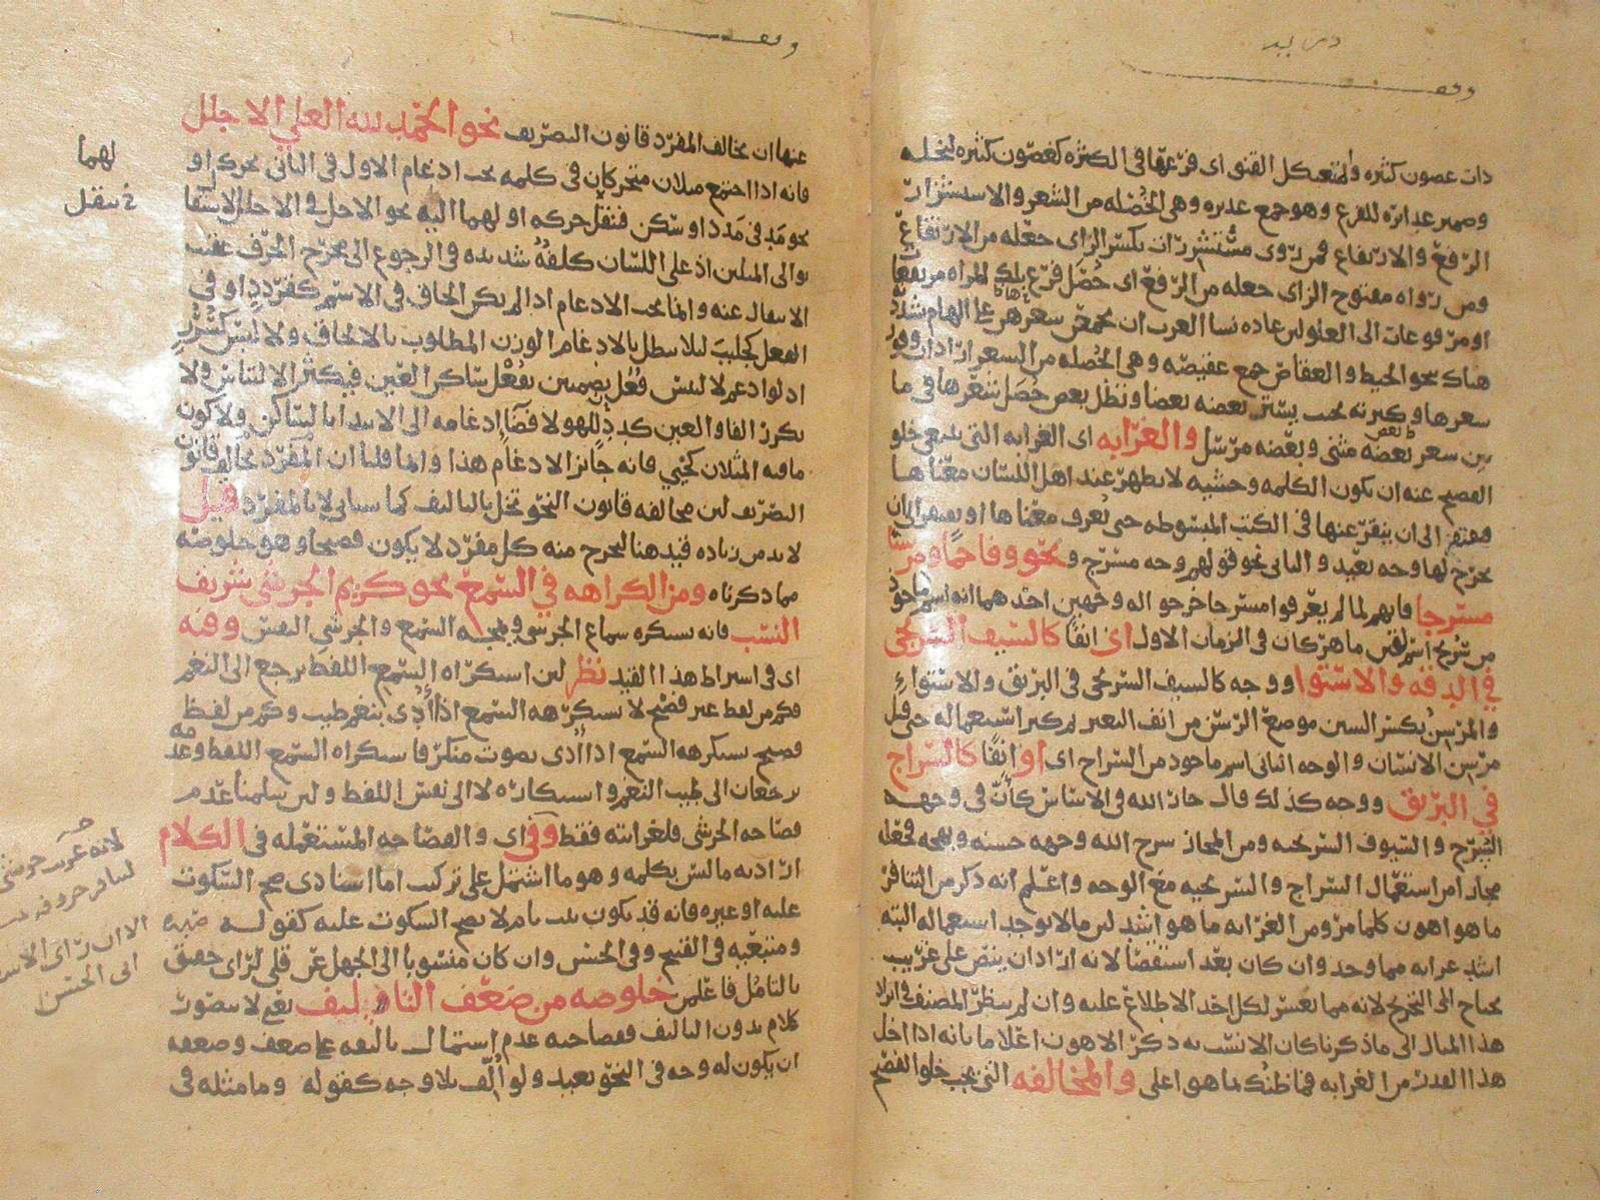 وقف
ذات غصون كثيره والمتعثكل القنو اى فرعها فى الكثره كغصون كثيره لنخله
وضمير غدائره للفرع وهو جمع غديره وهى الخصله من الشعر والاستشزار
الرفع والارتفاع فمن روى مستشزرات بكسر الزاى جعله من الارتفاع
ومن رواه مفتوح الزاى جعله من الرفع اى خصل فرع تلك المراه مرتفعا
او مرفوعات الى العلو لان عاده نسا العرب ان يجمعن شعرهن على الهام شد
هناك بنحو الخيط والعقاص جمع عقيصه وهى الخصله من الشعر اراد ان وفور
شعرها وكثرته بحيث يستتر بعضه بعضا وتظل بعض خصل شعرها فى ما
بين شعر بعضه مثنى وبعضه مرسل والغرابه اى الغرابه التى ينبغى خلو
الفصيح عنه ان يكون الكلمه وحشيه لا يظهر عند اهل اللسان معناها
فيفتقر الى ان ينقر عنها فى الكتب المبسوطه حتى يعرف معناها او يفتقر الى ان
يخرج لها وجه بعيد والثانى نحو قولهم وجه مسرج ونحو وفاحما ومرسنا
مسرجا فانهم لما لم يعرفوا مسرجا خرجوا له وجهين احدهما انه اسم ماخوذ
من سريج اسم لقين ماهر كان فى الزمان الاول اى انفا كالسيف السريجى
فى الدقه والاستوا ووجه كالسيف السريجى فى البريق والاستواء
والمرسن بكسر السين موضع الرسن من انف البعير ثم كثر استعماله حتى قيل
مرسن الانسان والوجه الثانى اسم ماخوذ من السراج اى او انفا كالسراج
فى البريق ووجه كذلك قال جار الله فى الاساس كأنّ فى وجهه
السرج والسيوف السريجيه ومن المجاز سرج الله وجهه حسنه وبهجه فجعله
مجازا من استعمال السراج والسريجيه مع الوجه واعلم انه ذكر من التنافر
ما هو اهون كلما مر ومن الغرابه ما هو اشد لان ما لا يوجد استعماله البته
اشد غرابه مما وجد وان كان بعد استقصا لانه اراد ان ينص على غريب
يحتاج الى التخريج لانه مما يعسر لكل احد الاطلاع عليه وان لم ينظر المصنف فى ايراد
هذا المثال الى ما ذكرنا كان الانسب به ذكر الاهون اعلاما بانه اذا اخل
هذا القدر من الغرابه فما ظنك بما هو اعلى والمخالفه التى يجب خلو الفصيح
وقف
عنها ان يخالف المفرد قانون التصريف نحو الحمد لله العلى الاجلل
فانه اذا اجتمع مثلان متحركان فى كلمه يجب ادغام الاول فى الثانى بحركه او
نحو مَدّ فى مَدَد او سكن فنقل حركه اولهما اليه نحو الاجل فى الاجلل لاستثقال
توالى المثلين اذ على اللسان كلفهُ شديده فى الرجوع الى مخرج الحرف عقيب
الانتقال عنه وانما يجب الادغام اذا لم يكن الحاق فى الاسم كقردد او فى
الفعل كجلبب لئلا يبطل بالادغام الوزن المطلوب بالالحاق ولا لبس كسُرُر
اذ لو ادغم لالتبس فُعُل بضمتين بفُعْل ساكن العين فيكثر الالتباس ولا
تكرر الفا والعين كددٍ للهو لافضاء ادغامه الى الابتدا بالساكن ولا كون
ما فيه المثلان كحيى فانه جائز الادغام هذا وانما قلنا ان المفرد يخالف قانون
التصريف لان مخالفه قانون النحو تخل بالتاليف كما سياتى لا بالمفرد قيل
لا بد من زياده قيد هنا ليخرج منه كل مفرد لا يكون فصيحا وهو خلوصه
مما ذكرناه ومن الكراهه فى السمع نحو كريم الجرشى شريف
النسب فانه يستكره سماع الجرشى ويمجه السمع والجرشى النفس وفيه
اى فى اشتراط هذا القيد نظر لان استكراه السمع اللفظ يرجع الى النغم
فكم من لفظ غير فصيح لا يستكرهه السمع اذا أُدّى بنغم طيب وكم من لفظ
فصيح يستكرهه السمع اذا أُدى بصوت منكر فاستكراه السمع اللفظ وعدمه
يرجعان الى طيب النغم واستكراهه لا الى نفس اللفظ ولئن سلمنا عدم
فصاحه الجرشى فلغرابته فقط وفى اى والفصاحه المستعمله فى الكلام
اراد به ما ليس بكلمه وهو ما اشتمل على تركيب اما اسنادى صح السكوت
عليه او غيره فانه قد يكون بيت تام لا يصح السكوت عليه كقوله
بالتامل فاعلمن خلوصه من ضعف التاليف نعم لا يتصور
كلام بدون التاليف ففصاحته عدم اشتمال تاليفه على ضعف وضعفه
ان يكون له وجه فى النحو بعيد ولو أُلّف بلا وجه كقوله وما مثله فى
لهما